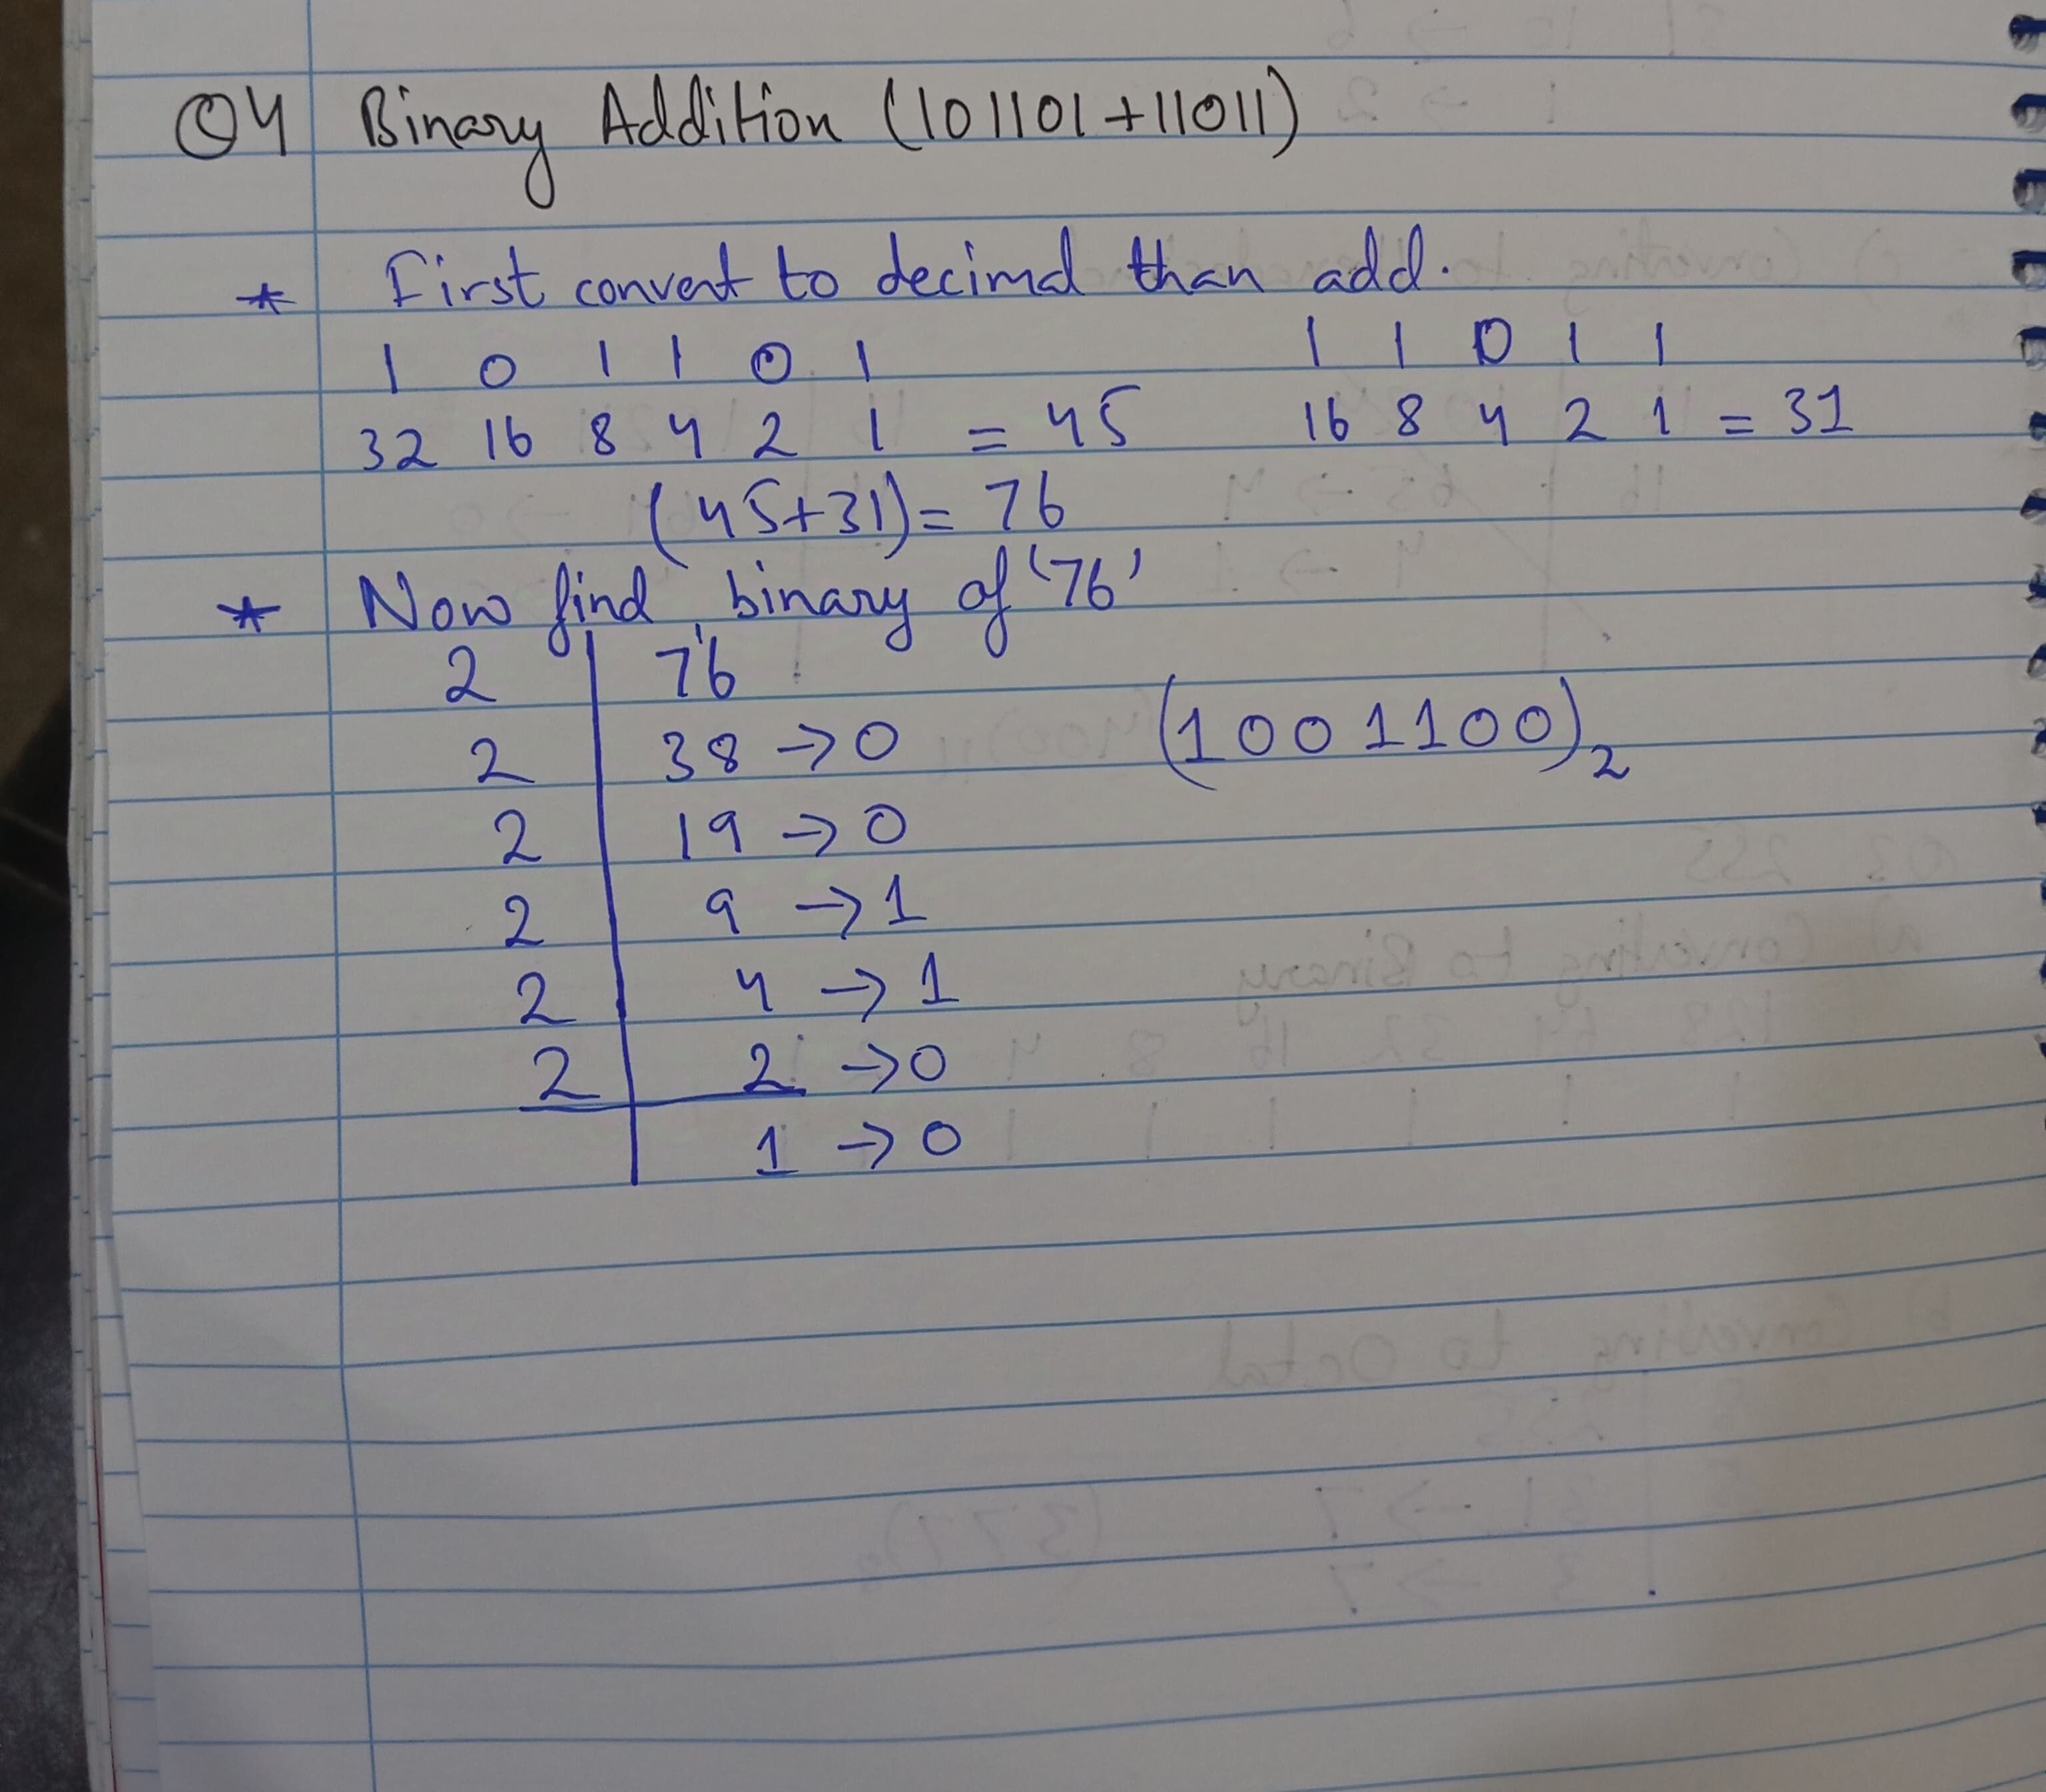 Q4 Binary Addition (101101+11011)
* First convert to decimal than add.
1 0 1 1 0 1 1 1 0 1 1
32 16 8 4 2 1 = 45 16 8 4 2 1 = 31
(45+31)= 76
* Now find binary of '76'
2 76
2 38 → 0 (1001100)2
2 19 → 0
2 9 → 1
2 4 → 1
2 2 → 0
1 → 0